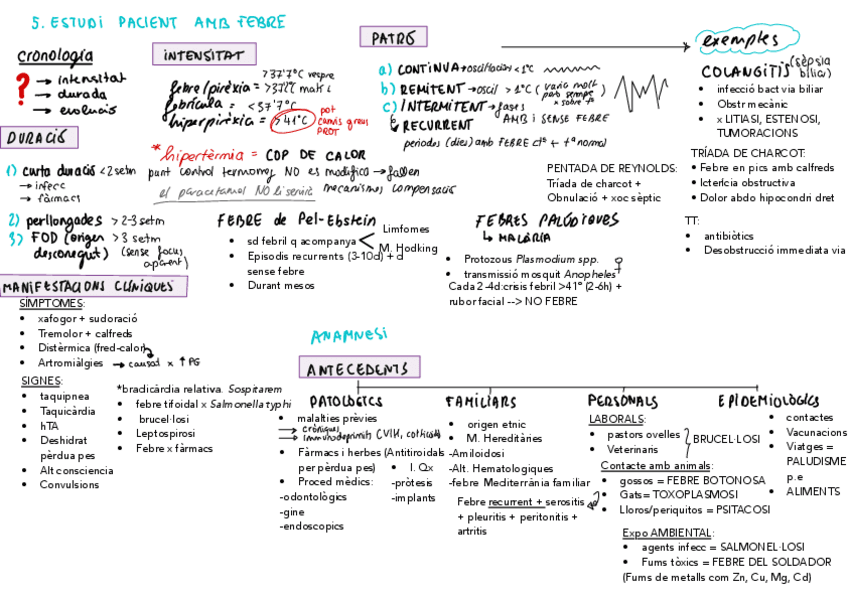 5. ESTUDI PACIENT AMB FEBRE
cronologia
? → intensitat
→ durada
→ evolució
INTENSITAT
>37'7ºC vespre
febre/pirèxia =
febrícula = <37'7ºC
hiperpirèxia = >41ºC
pot canvis greus PROT
*hipertèrmia = COP DE CALOR
punt control termoreg NO es modifica → fallen mecanismes compensació
el paracetamol NO li serviria
PATRÓ
a) CONTINUA → oscil·lacions <1ºC
b) REMITENT → oscil > 1ºC (varia molt però sempre x sobre tª)
c) INTERMITENT → fases AMB i SENSE FEBRE
↳ RECURRENT
períodes (dies) amb FEBRE + tª normal
exemples
COLANGITIS (sèpsia biliar)
• infecció bact via biliar
• Obstr mecànic
• x LITIASI, ESTENOSI, TUMORACIONS
TRÍADA DE CHARCOT:
• Febre en pics amb calfreds
• Icterícia obstructiva
• Dolor abdo hipocondri dret
PENTADA DE REYNOLDS:
Tríada de charcot +
Obnulació + xoc sèptic
TT:
• antibiòtics
• Desobstrucció immediata via
DURACIÓ
1) curta duració <2setm
→ infecc
→ fàrmacs
2) perllongades > 2-3 setm
3) FOD (origen desconegut) > 3 setm
(sense focus aparent)
FEBRE de Pel-Ebstein
• sd febril q acompanya < Limfomes
M. Hodking
• Episodis recurrents (3-10d) + d
sense febre
• Durant mesos
FEBRES PALÚDIQUES
↳ MALÀRIA
• Protozous Plasmodium spp.
• transmissió mosquit Anopheles ♀
Cada 2-4d:crisis febril >41° (2-6h) +
rubor facial --> NO FEBRE
MANIFESTACIONS CLÍNIQUES
SÍMPTOMES:
• xafogor + sudoració
• Tremolor + calfreds
• Distèrmica (fred-calor)
• Artromiàlgies → causat x ↑ PG
SIGNES:
• taquipnea
• Taquicàrdia
• hTA
• Deshidrat
pèrdua pes
• Alt consciencia
• Convulsions
*bradicàrdia relativa. Sospitarem
• febre tifoidal x Salmonella typhi
• brucel·losi
• Leptospirosi
• Febre x fàrmacs
ANAMNESI
ANTECEDENTS
PATOLÒGICS
• malalties prèvies
→ cròniques
→ immunodeprimits (VIH, corticoids)
• Fàrmacs i herbes (Antitiroidals
per pèrdua pes)
• Proced mèdics:
-odontològics
-gine
-endoscopics
• I. Qx
-pròtesis
-implants
FAMILIARS
• origen etnic
• M. Hereditàries
-Amiloidosi
-Alt. Hematologiques
-febre Mediterrània familiar
Febre recurrent + serositis
+ pleuritis + peritonitis +
artritis
PERSONALS
LABORALS:
• pastors ovelles
• Veterinaris
BRUCEL·LOSI
Contacte amb animals:
• gossos = FEBRE BOTONOSA
• Gats= TOXOPLASMOSI
• Lloros/periquitos = PSITACOSI
Expo AMBIENTAL:
• agents infecc = SALMONEL·LOSI
• Fums tòxics = FEBRE DEL SOLDADOR
(Fums de metalls com Zn, Cu, Mg, Cd)
EPIDEMIOLÒGICS
• contactes
• Vacunacions
• Viatges =
PALUDISME
p.e
• ALIMENTS